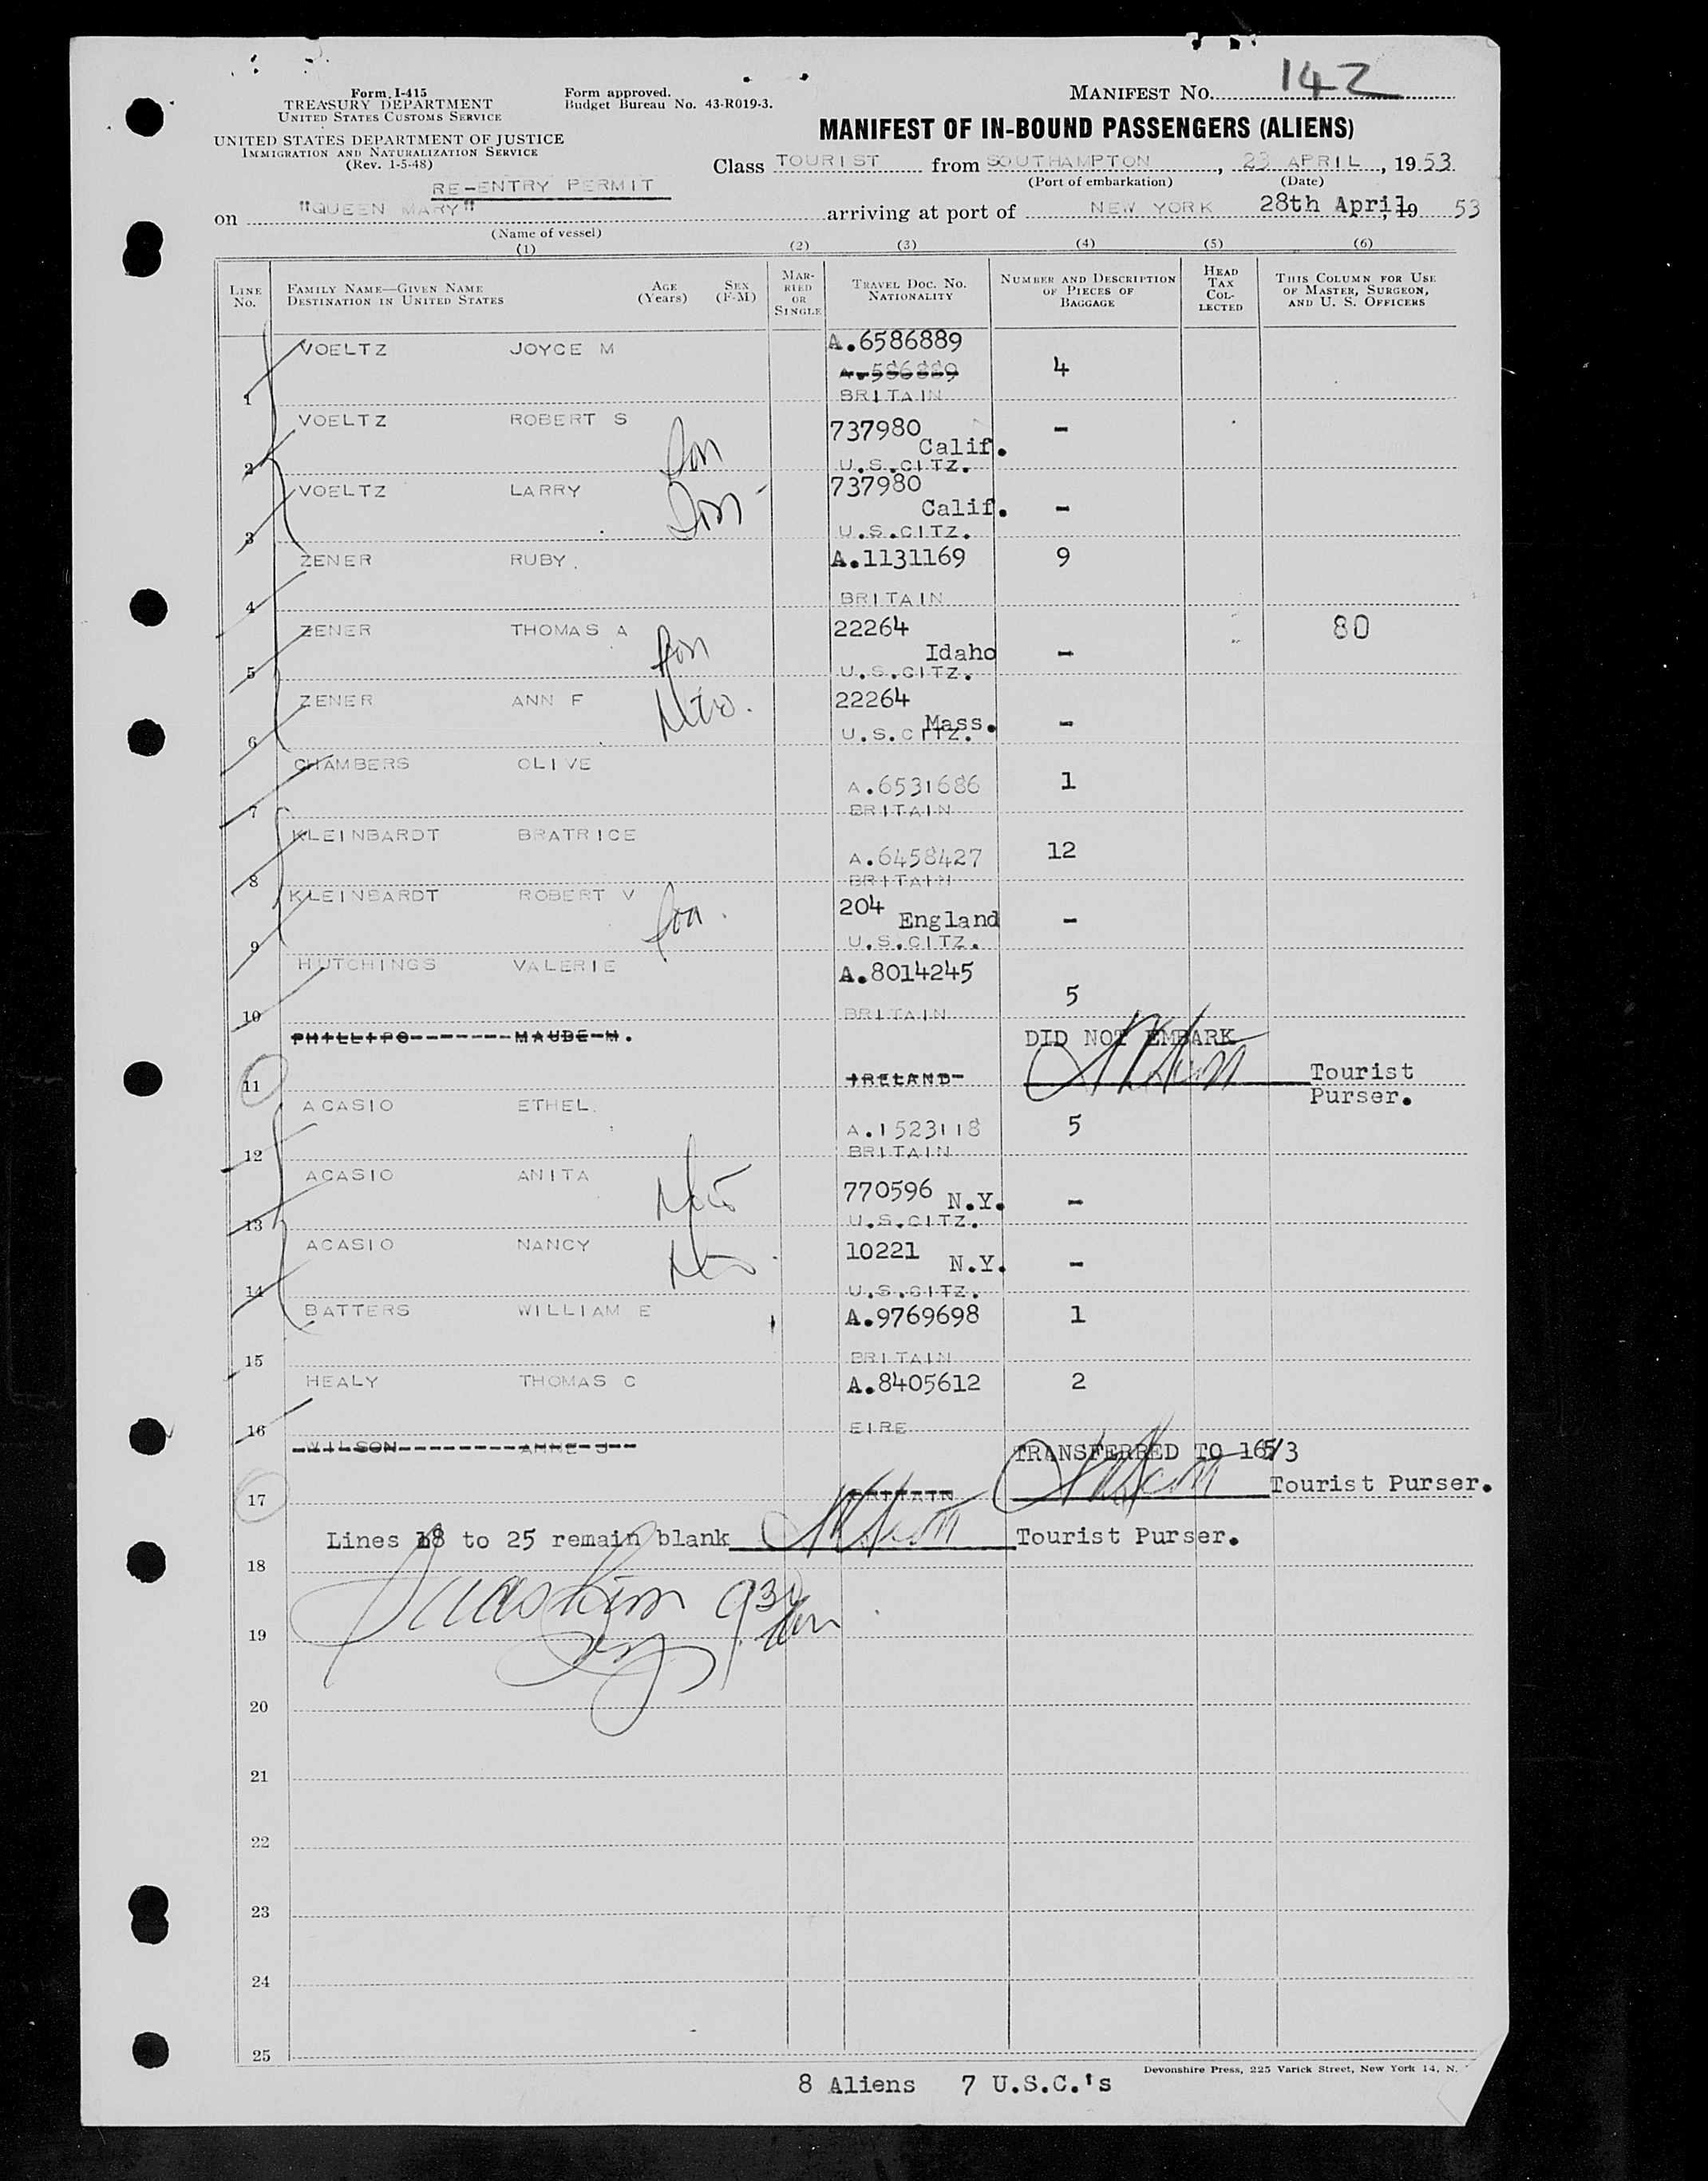 Form I-415
TREASURY DEPARTMENT
UNITED STATES CUSTOMS SERVICE
UNITED STATES DEPARTMENT OF JUSTICE
IMMIGRATION AND NATURALIZATION SERVICE
(Rev. 1-5-48)
Form approved.
Budget Bureau No. 43-R019-3.
MANIFEST NO. 142
MANIFEST OF IN-BOUND PASSENGERS (ALIENS)
Class TOURIST from SOUTHAMPTON, 23 APRIL, 1953
(Port of embarkation) (Date)
RE-ENTRY PERMIT
on "QUEEN MARY" arriving at port of NEW YORK 28th April, 19 53
(Name of vessel)
(1) (2) (3) (4) (5) (6)
LINE No. FAMILY NAME—GIVEN NAME DESTINATION IN UNITED STATES AGE (Years) SEX (F-M) MARRIED OR SINGLE TRAVEL DOC. NO. NATIONALITY NUMBER AND DESCRIPTION OF PIECES OF BAGGAGE HEAD TAX COLLECTED THIS COLUMN FOR USE OF MASTER, SURGEON, AND U. S. OFFICERS
VOELTZ JOYCE M A.6586889
A.586889 4
1 BRITAIN
VOELTZ ROBERT S 737980 -
Son Calif.
2 U.S.CITZ.
VOELTZ LARRY 737980
Son Calif. -
3 U.S.CITZ.
ZENER RUBY. A.1131169 9
4 BRITAIN
ZENER THOMAS A 22264 80
Son Idaho -
5 U.S.CITZ.
ZENER ANN F 22264
Mass. -
6 U.S.CITZ.
CHAMBERS OLIVE
A.6531686 1
7 BRITAIN
KLEINBARDT BRATRICE
A.6458427 12
8 BRITAIN
KLEINBARDT ROBERT V 204
Son. England -
9 U.S.CITZ.
HUTCHINGS VALERIE A.8014245
5
10 BRITAIN
PHILLIPO MAUDE M. DID NOT EMBARK
11 IRELAND Tourist
Purser.
ACASIO ETHEL.
A.1523118 5
12 BRITAIN
ACASIO ANITA
770596 N.Y. -
13 U.S.CITZ.
ACASIO NANCY 10221
N.Y. -
14 U.S.CITZ.
BATTERS WILLIAM E A.9769698 1
15 BRITAIN
HEALY THOMAS C A.8405612 2
16 EIRE
WILSON ANNE J TRANSFERRED TO 165/3
17 BRITAIN Tourist Purser.
Lines 18 to 25 remain blank Tourist Purser.
18
19
20
21
22
23
24
25
Devonshire Press, 225 Varick Street, New York 14, N.
8 Aliens 7 U.S.C.'s